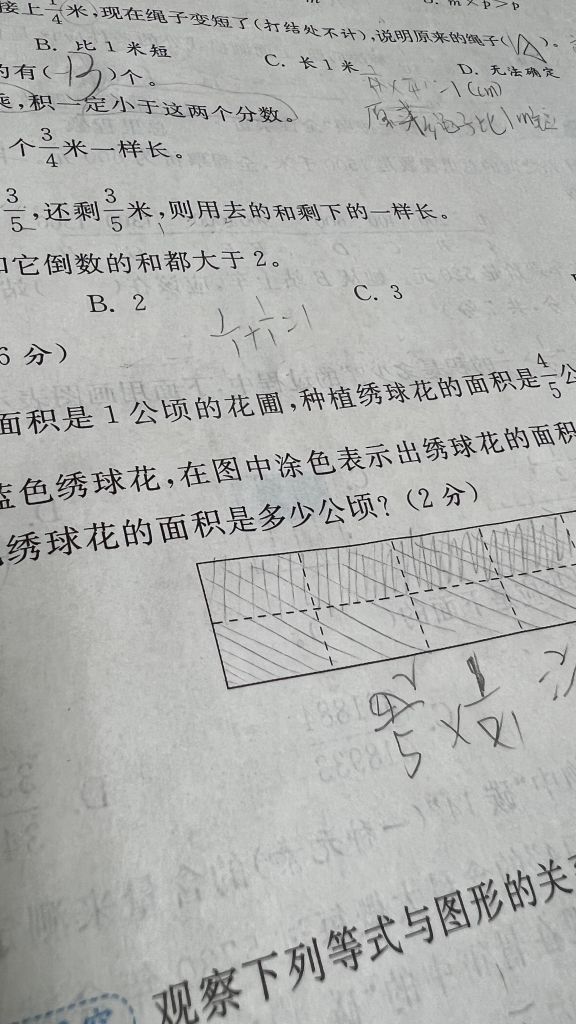 接上1/4米,现在绳子变短了(打结处不计),说明原来的绳子(A)。
B. 比 1 米短 C. 长 1 米 D. 无法确定
的有(B)个。
乘,积一定小于这两个分数。
=1(cm)
个3/4米一样长。
3/5,还剩3/5米,则用去的和剩下的一样长。
和它倒数的和都大于 2。
B. 2 C. 3
1/1+1/1=1
6 分)
面积是 1 公顷的花圃,种植绣球花的面积是4/5公
蓝色绣球花,在图中涂色表示出绣球花的面积
绣球花的面积是多少公顷?(2 分)
4/5×1/2
观察下列等式与图形的关